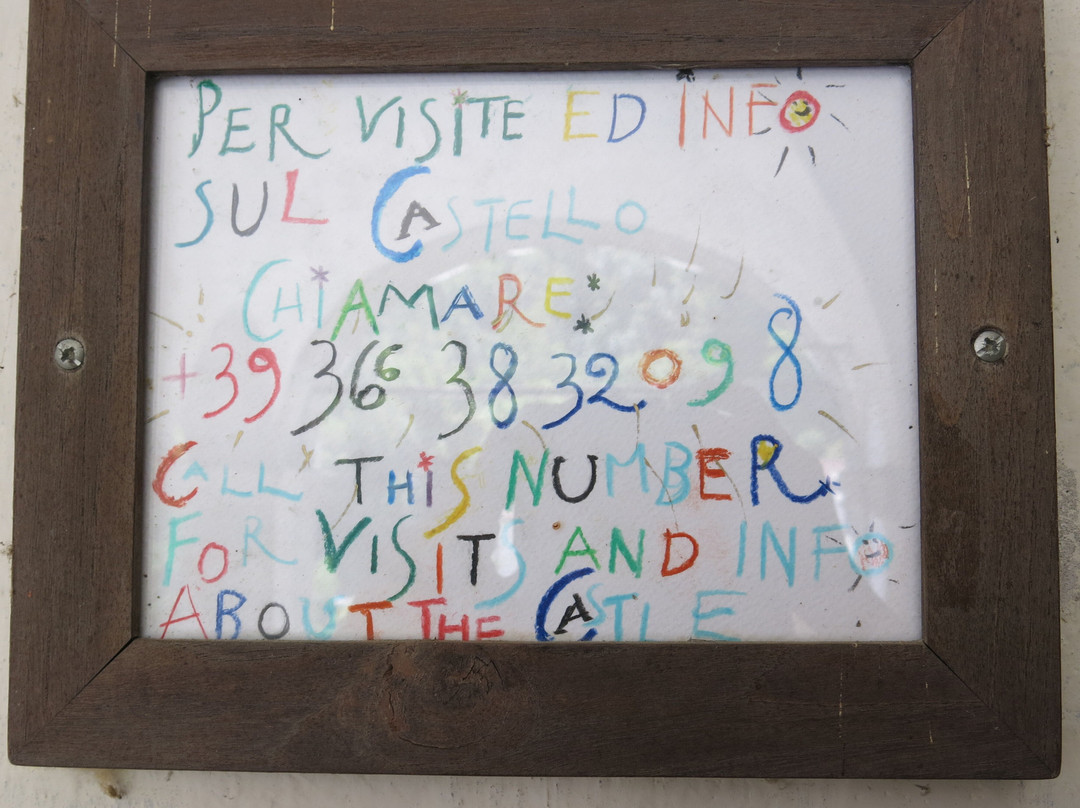 PER VISITE ED INFO
SUL CASTELLO
CHIAMARE:
+39 366 38 32 0 9 8
CALL THIS NUMBER
FOR VISITS AND INFO
ABOUT THE CASTLE